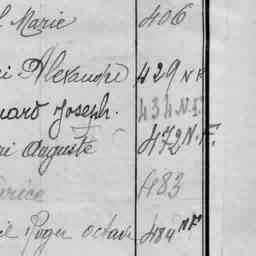 Marie 406
Alexandre 429 N.F.
Joseph. 434 N.F.
Auguste 472 N.F.
483
Roger octave 484 N.F.